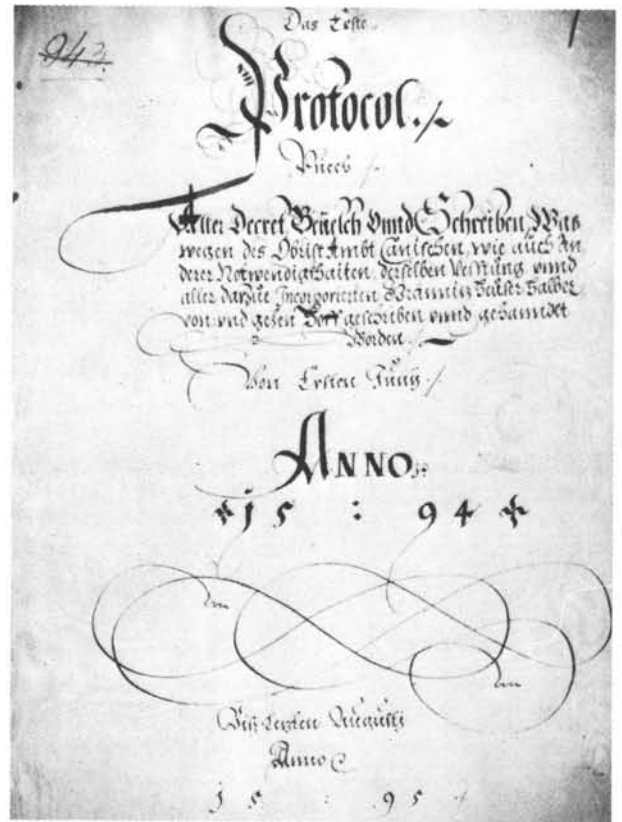 942.
Das Erste
Protocol./.
Puech
Aller Decret Beuelch Vnnd Schreiben, Was
wegen des Obrist Ambt Canischen, wie auch An
derer Notwendigkhaiten, derselben Vesstung, vnnd
aller darzue Incorporierten Gränniz Heüser halber
von vnd gehen Hoff geschriben vnnd gehanndlt
Worden./.
Von Ersten Junij./.
ANNO.
15 : 94
Biß Lezten Augusti
Anno
15 : 95